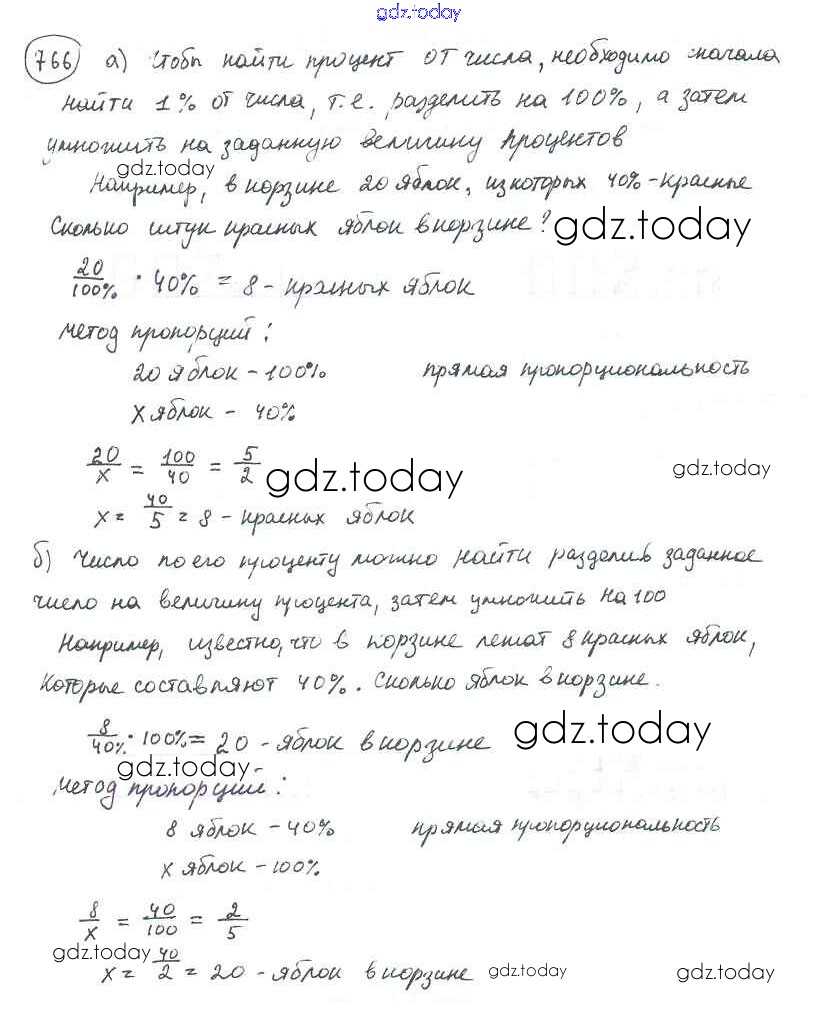 gdz.today
766 а) Чтобы найти процент от числа, необходимо сначала
найти 1% от числа, т.е. разделить на 100%, а затем
умножить на заданную величину процентов
gdz.today
Например, в корзине 20 яблок, из которых 40% - красные
Сколько штук красных яблок в корзине? gdz.today
20/100% · 40% = 8 - красных яблок
Метод пропорций:
20 яблок - 100% прямая пропорциональность
x яблок - 40%
20/x = 100/40 = 5/2 gdz.today gdz.today
x = 40/5 = 8 - красных яблок
б) Число по его проценту можно найти разделив заданное
число на величину процента, затем умножить на 100
Например, известно, что в корзине лежат 8 красных яблок,
которые составляют 40%. Сколько яблок в корзине.
8/40% · 100% = 20 - яблок в корзине gdz.today
gdz.today
Метод пропорций:
8 яблок - 40% прямая пропорциональность
x яблок - 100%
8/x = 40/100 = 2/5
gdz.today
x = 40/2 = 20 - яблок в корзине gdz.today gdz.today